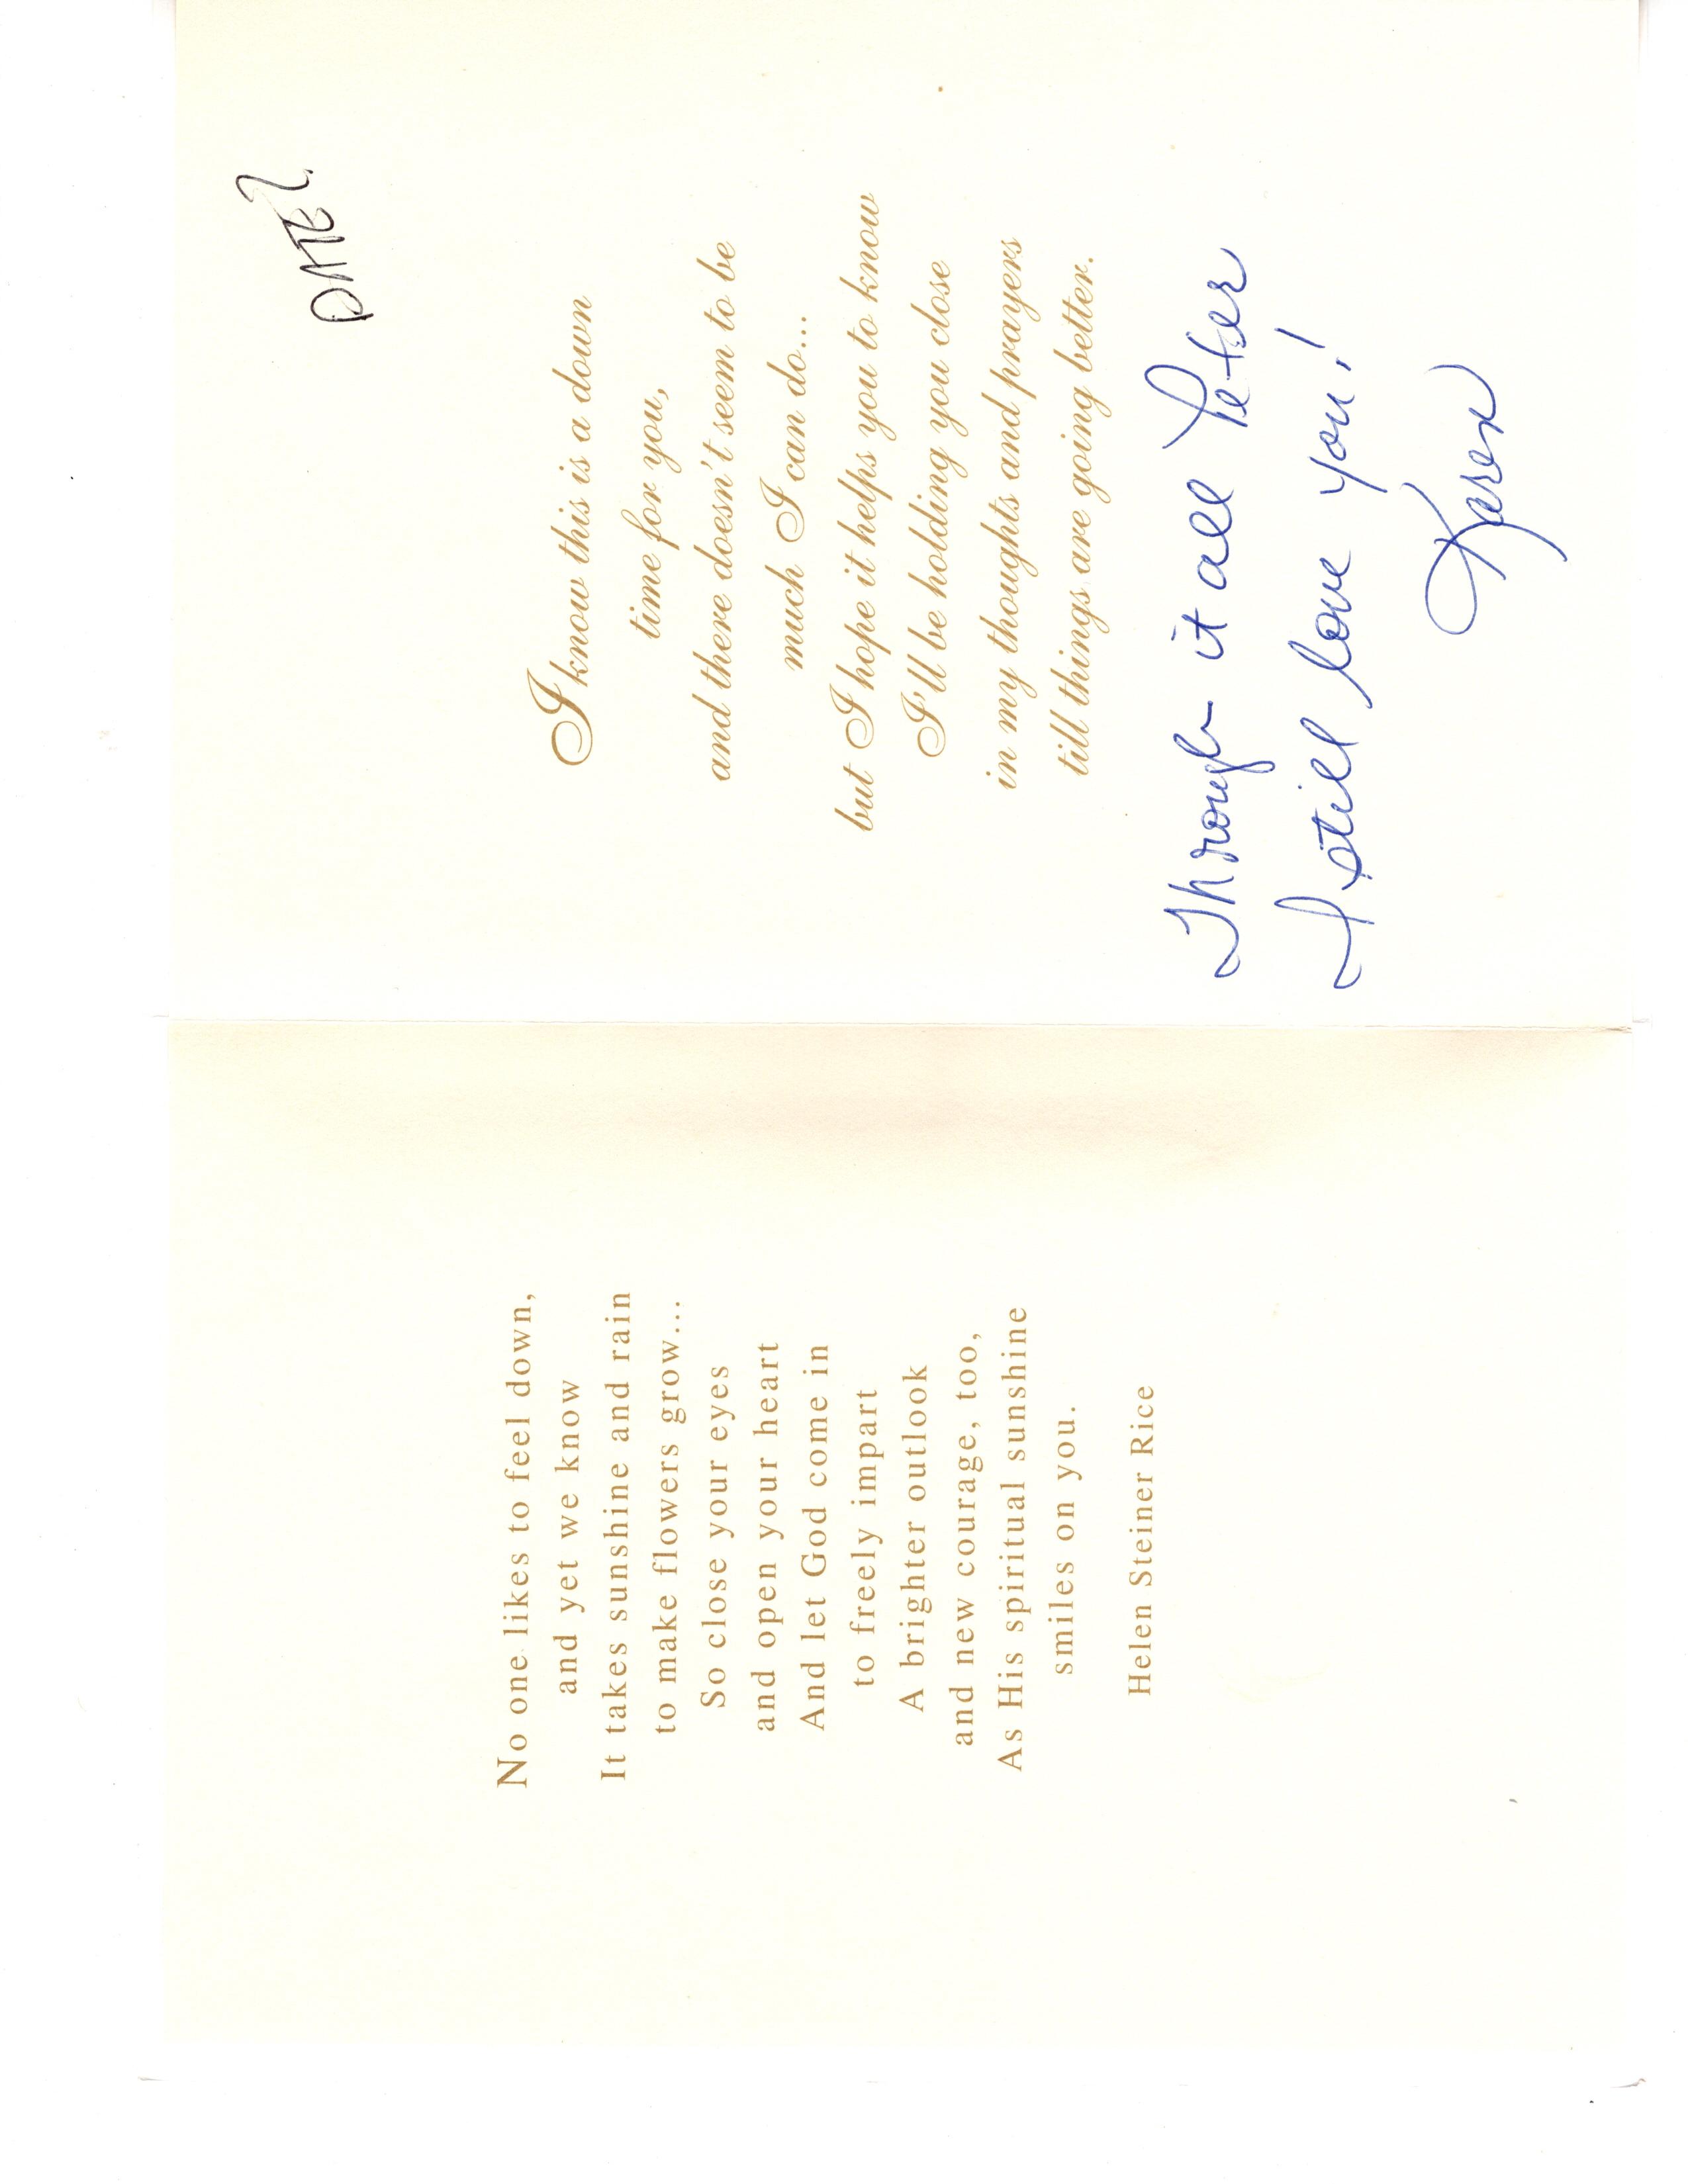 No one likes to feel down,
and yet we know
It takes sunshine and rain
to make flowers grow...
So close your eyes
and open your heart
And let God come in
to freely impart
A brighter outlook
and new courage, too,
As His spiritual sunshine
smiles on you.
Helen Steiner Rice
I know this is a down
time for you,
and there doesn't seem to be
much I can do...
but I hope it helps you to know
I'll be holding you close
in my thoughts and prayers
till things are going better.
Through it all Peter
I still love you!
Karen